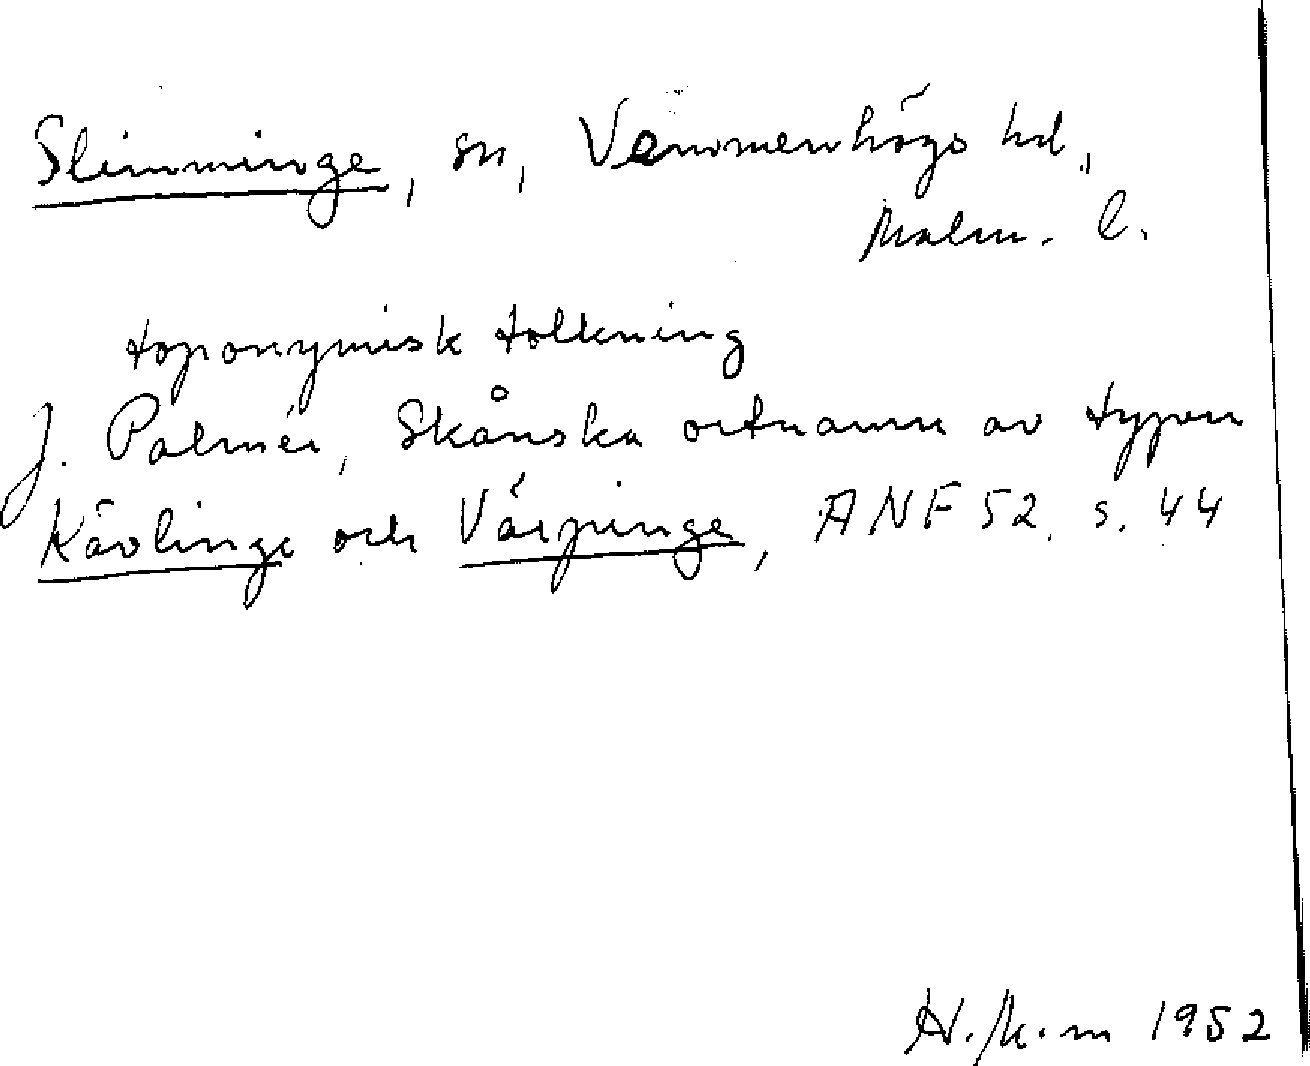 Slimminge, sn, Vemmenhögs hd,
Malm. l.
toponymisk tolkning
J. Palmér, Skånska ortnamn av typen
Kävlinge och Värpinge, ANF 52. s. 44
1952